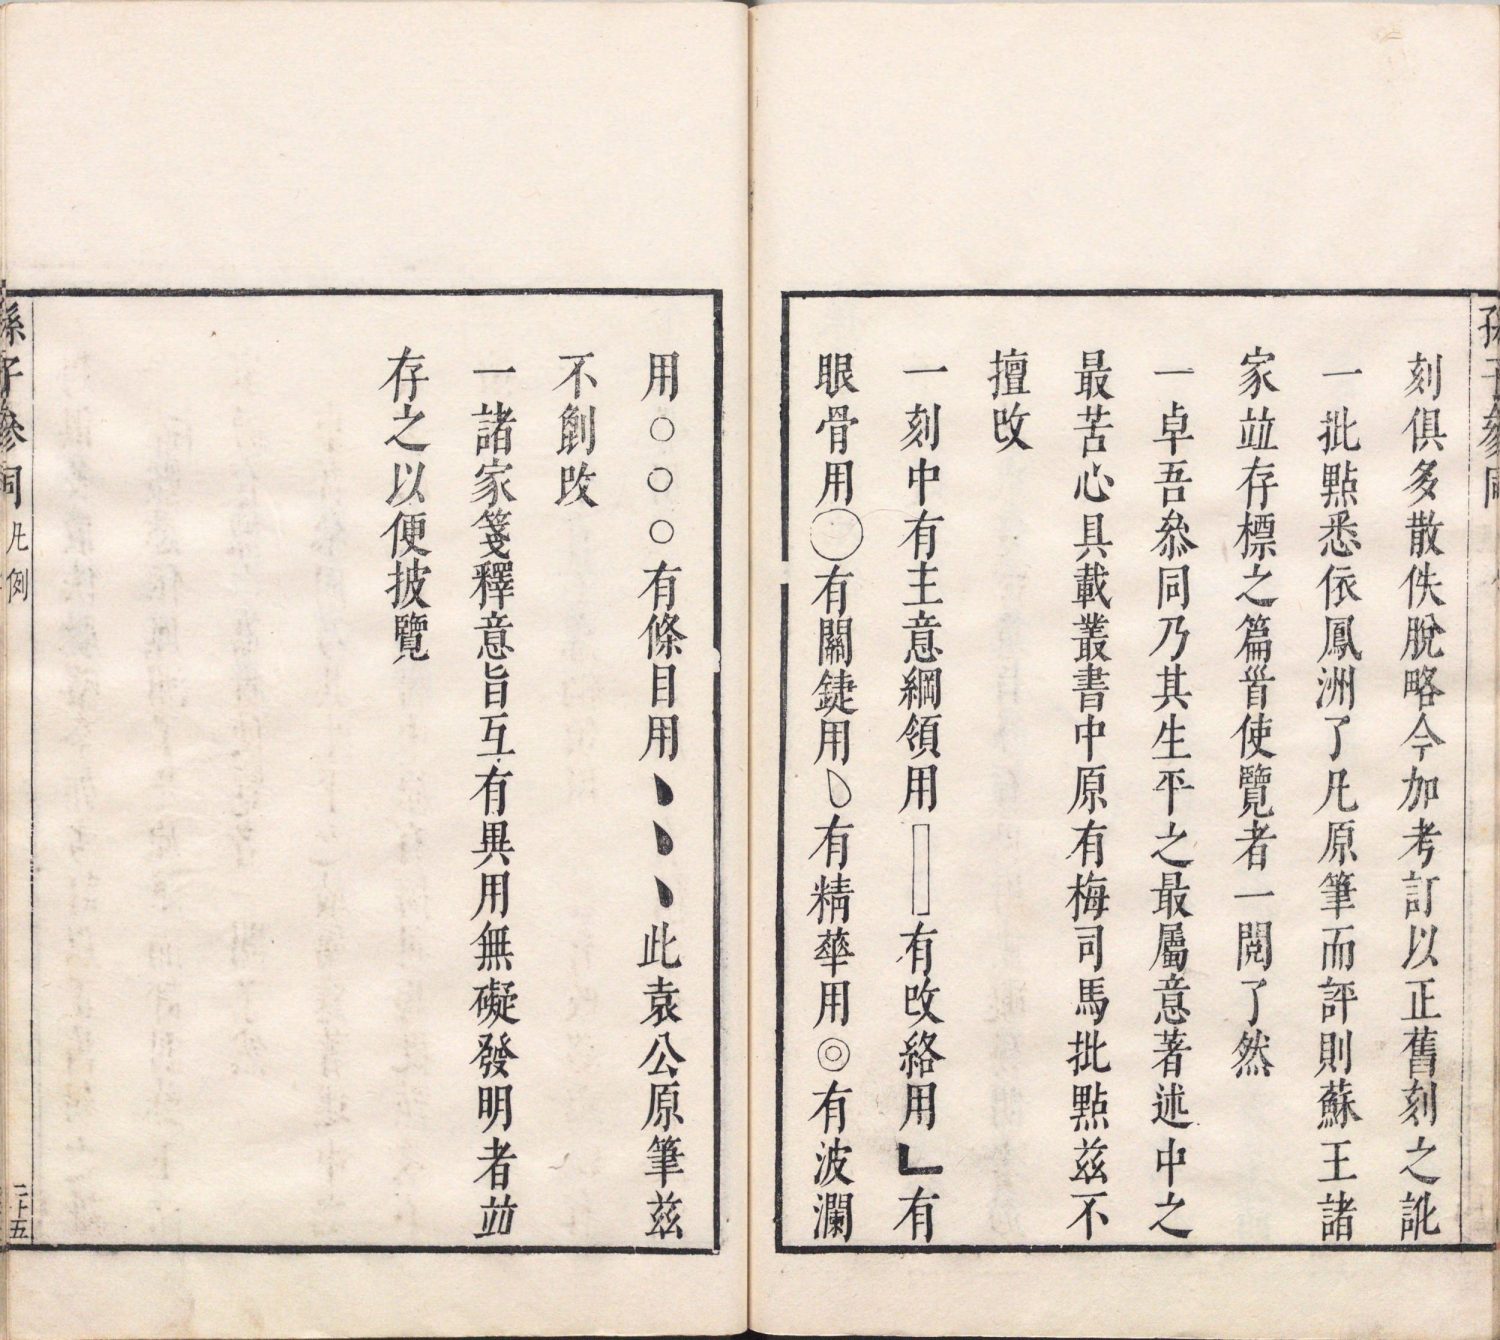 孫子參同
刻俱多散佚脫略今加考訂以正舊刻之訛
一批點悉依鳳洲了凡原筆而評則蘇王諸
家並存標之篇首使覽者一閱了然
一卓吾叅同乃其生平之最屬意著述中之
最苦心具載叢書中原有梅司馬批點茲不
擅改
一刻中有主意綱領用▯有改絡用┗有
眼骨用◯有關鍵用𝇁有精華用◎有波瀾
用○○○有條目用﹅﹅﹅此袁公原筆茲
不創改
一諸家箋釋意旨互有異用無礙發明者並
存之以便披覽
孫子參同 凡例 二十五